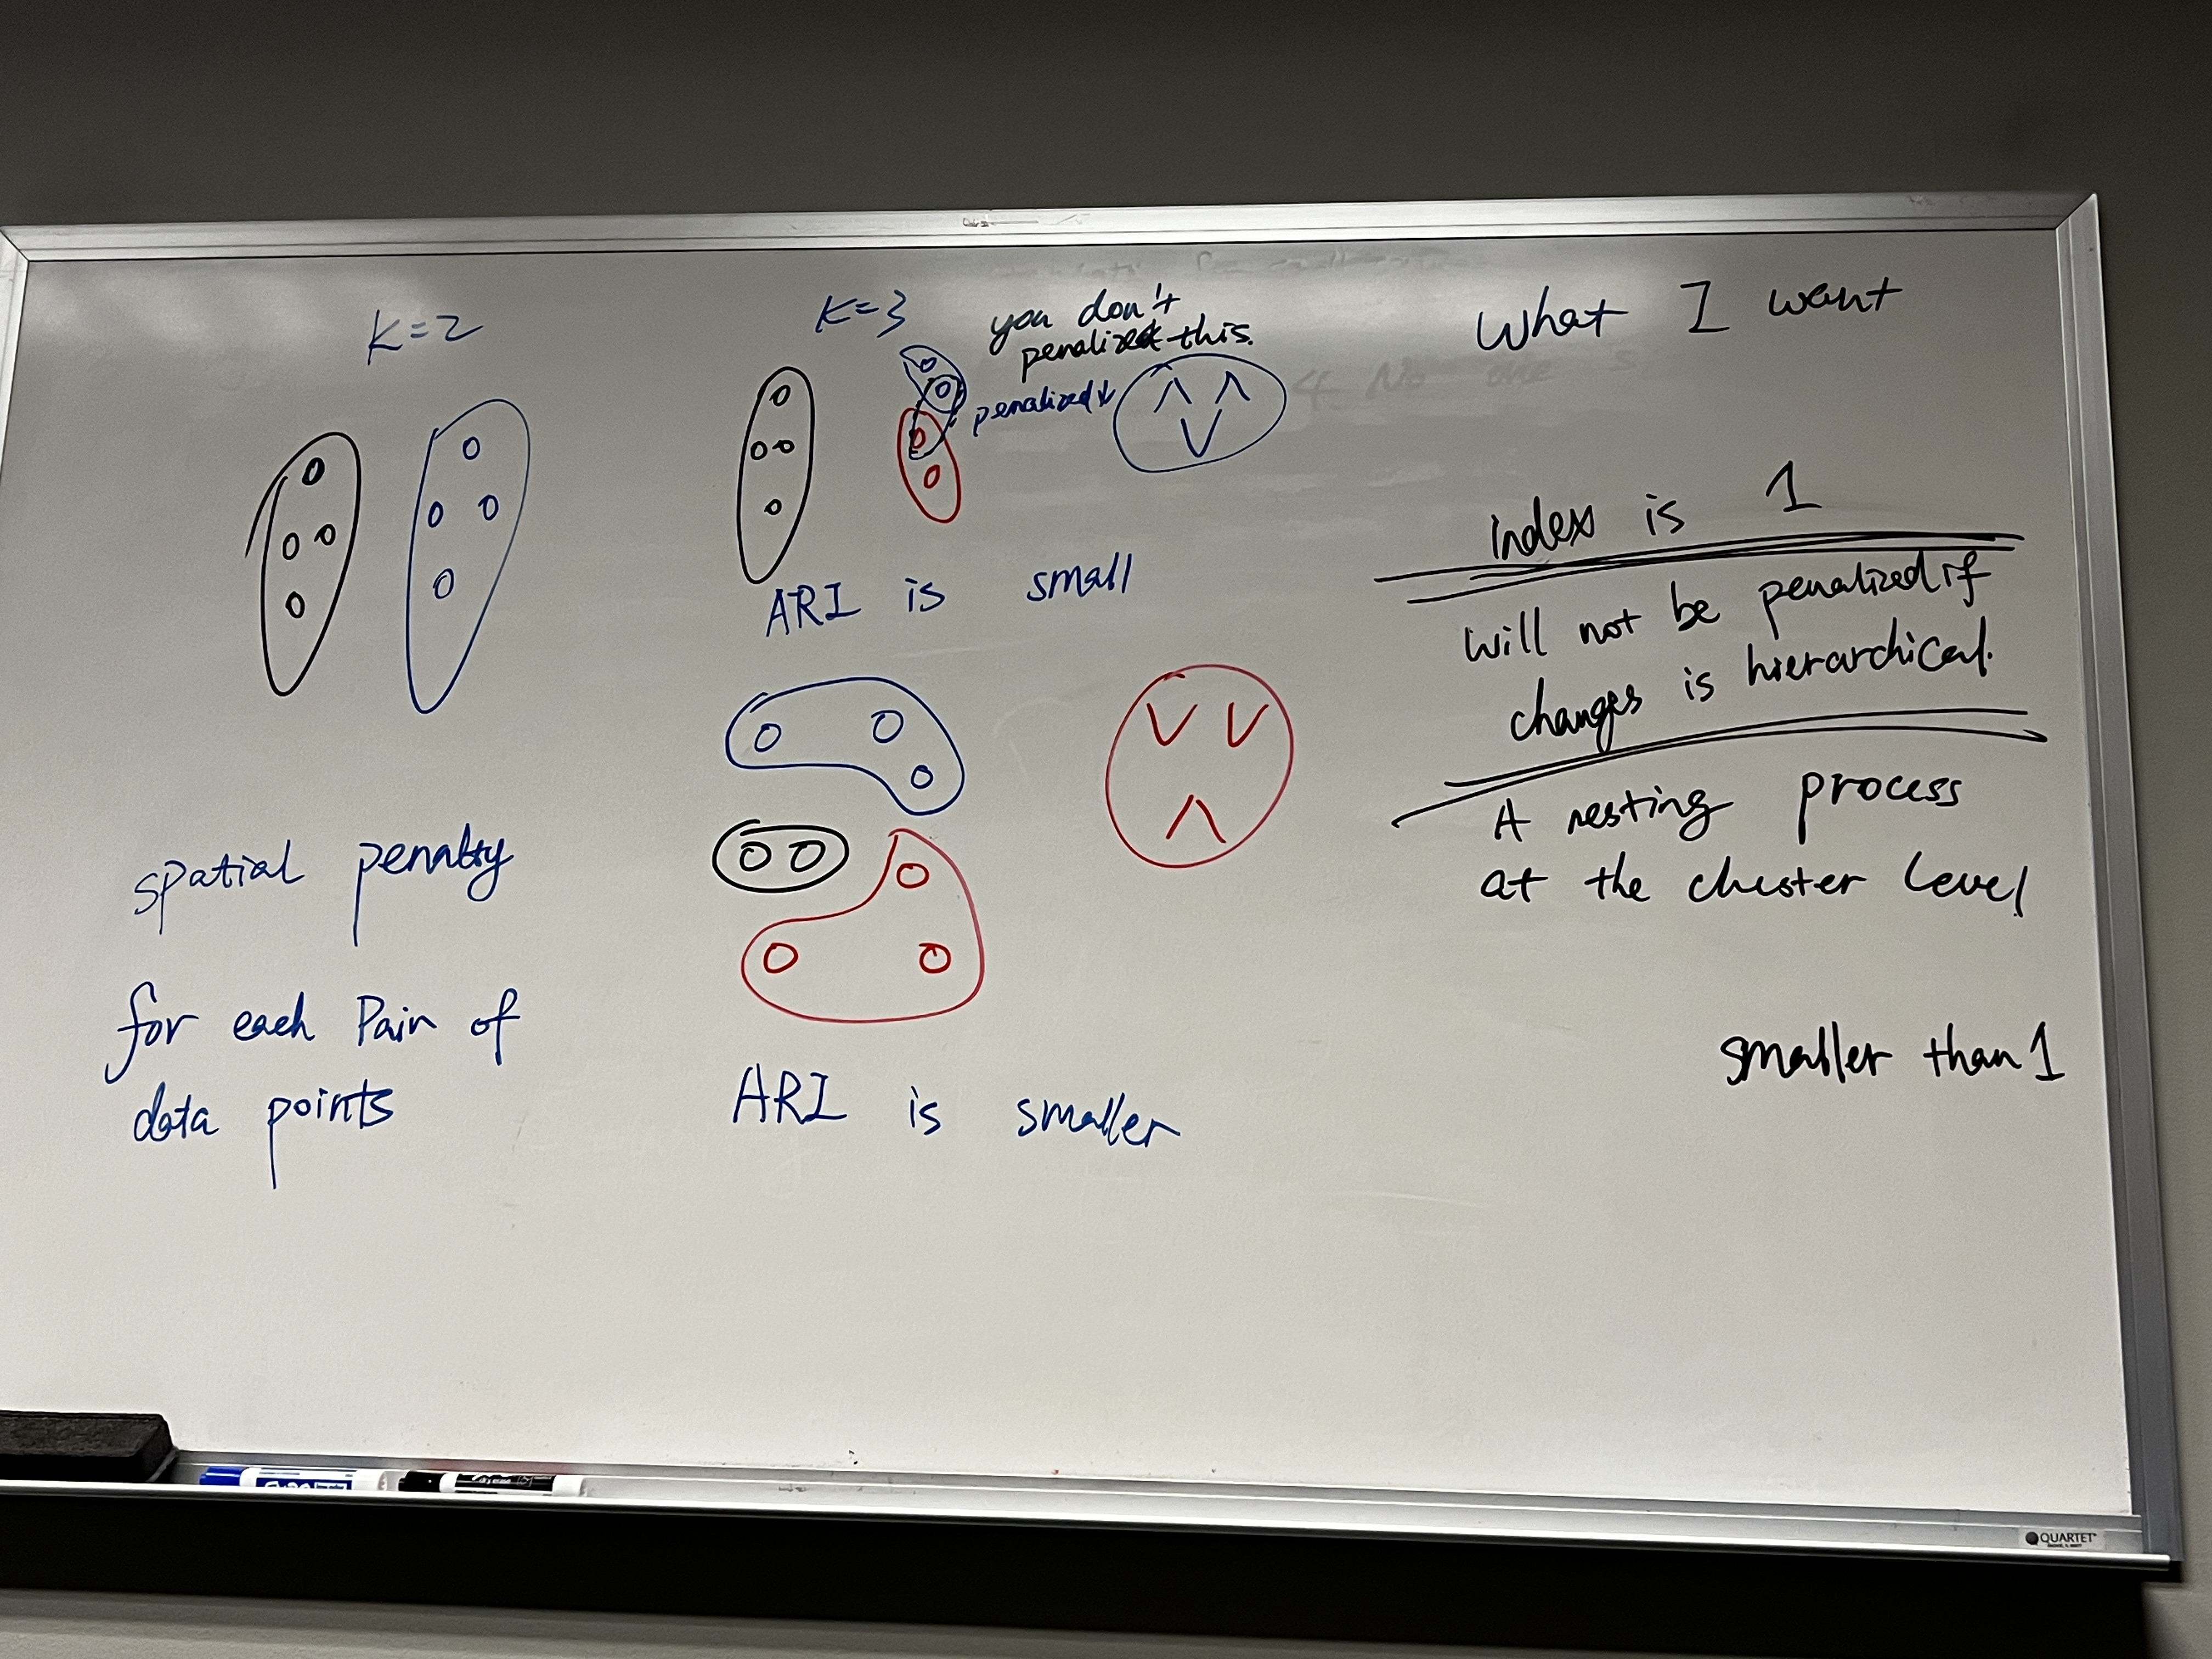 K=2
spatial penalty
for each Pair of
data points
K=3
you don't
penalized this.
penalized
ARI is small
ARI is smaller
What I want
index is 1
will not be penalized if
changes is hierarchical.
A nesting process
at the cluster level
smaller than 1
QUARTET